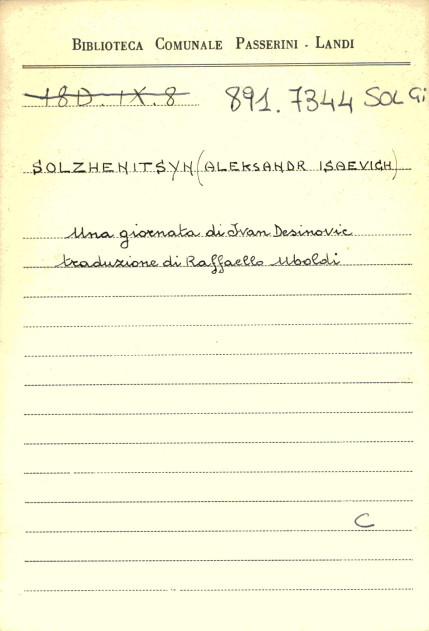 BIBLIOTECA COMUNALE PASSERINI - LANDI
18D.IX.8 891.7344 SOL Gi
SOLZHENITSYN (ALEKSANDR ISAEVICH)
Una giornata di Ivan Desinovic
traduzione di Raffaello Uboldi
C